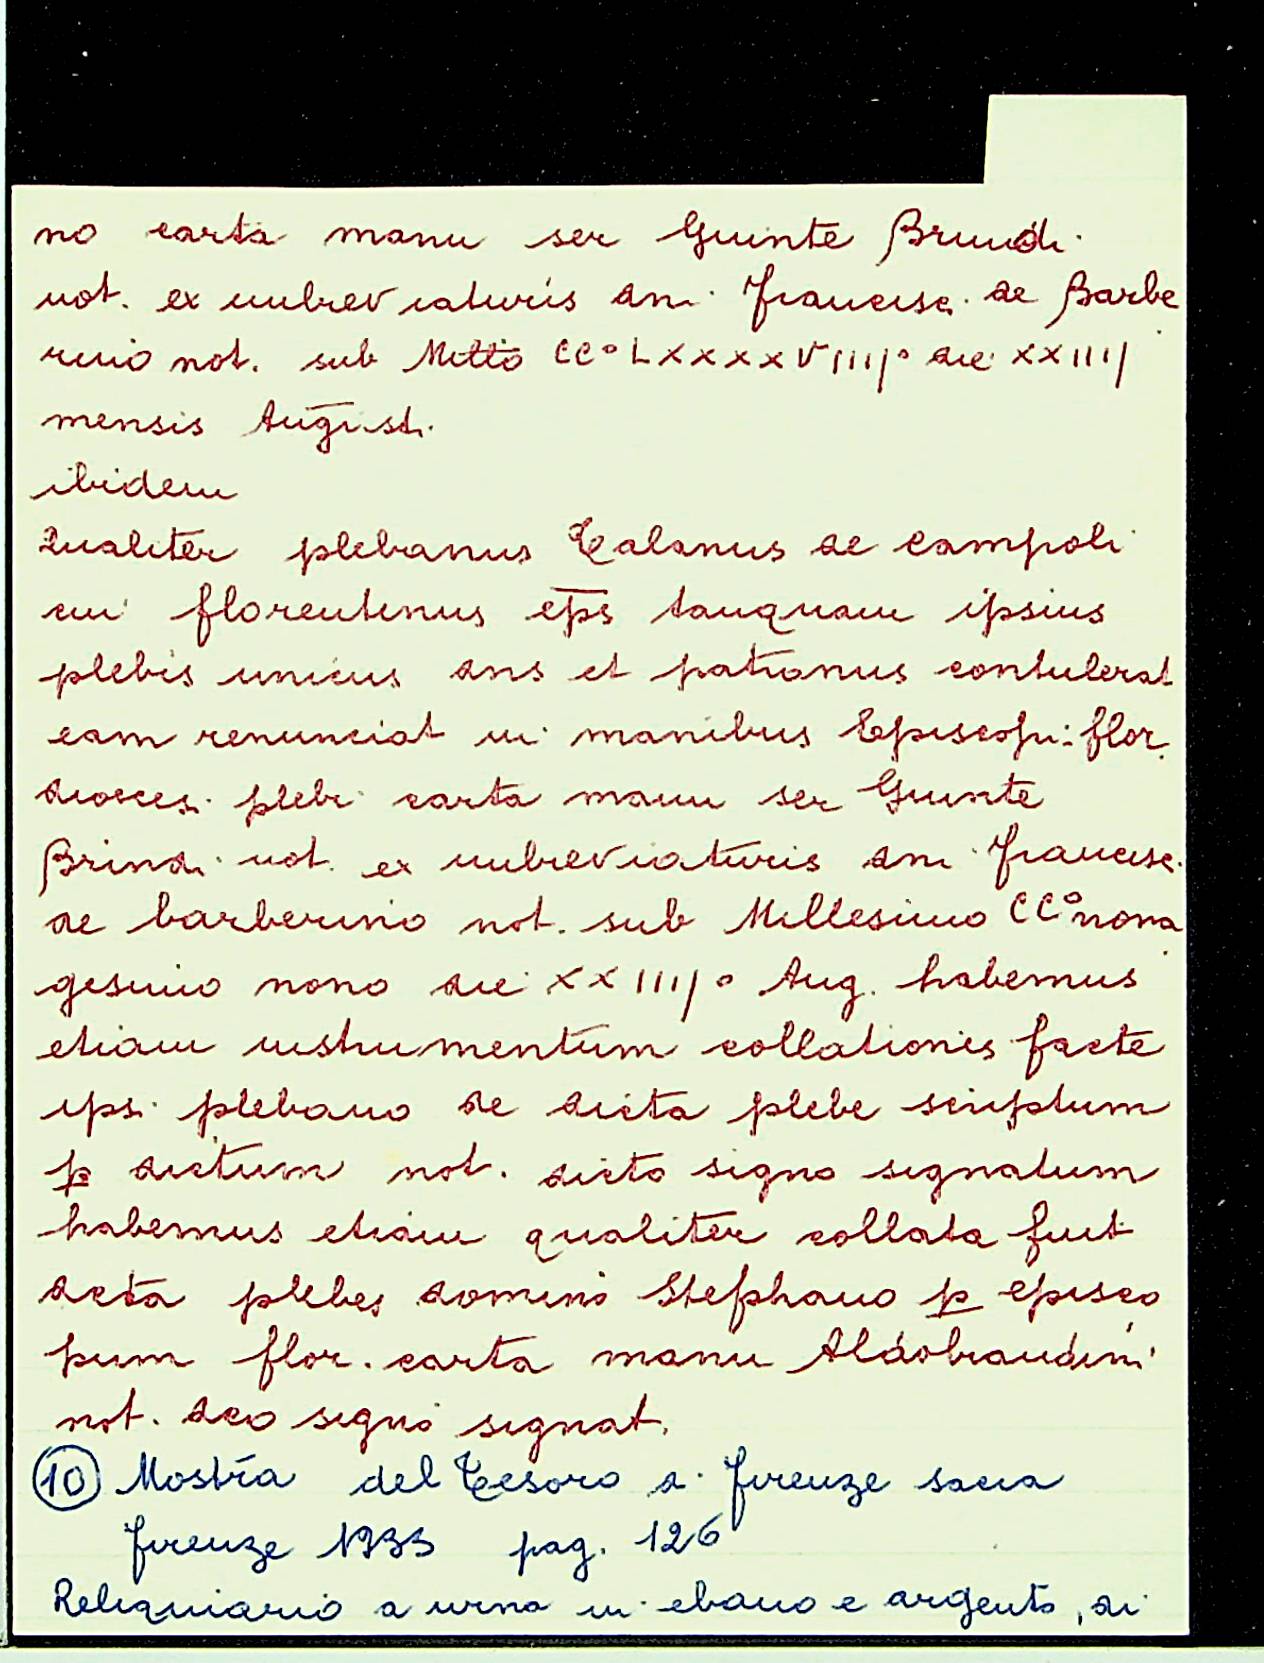 no carta manu ser Giunte Brindi
not. ex imbreviaturis dni Francisc. de Barbe
rino not. sub Mill̄o CC° LXXXXVIIII° die XXIIIJ
mensis Augusti.
ibidem
Qualiter plebanus Talanus de Campoli
cui florentinus ep̄s tanquam ipsius
plebis unicus dns et patronus contulerat
eam renunciat in manibus Episcopi flor.
dioeces. plebi carta manu ser Giunte
Brindi not. ex imbreviaturis dni Francisc.
de barberino not. sub Millesimo CC° nona
gesimo nono die XXIIIJ° Aug. habemus
etiam instrumentum collationis facte
ipsi plebano de dicta plebe scriptum
p dictum not. dicto signo signatum
habemus etiam qualiter collata fuit
dcta plebes domino Stephano p episco
pum flor. carta manu Aldobrandini
not. dco signo signat.
(10) Mostra del Tesoro di Firenze sacra
Firenze 1933 pag. 126
Reliquiario a urna in ebano e argento, di